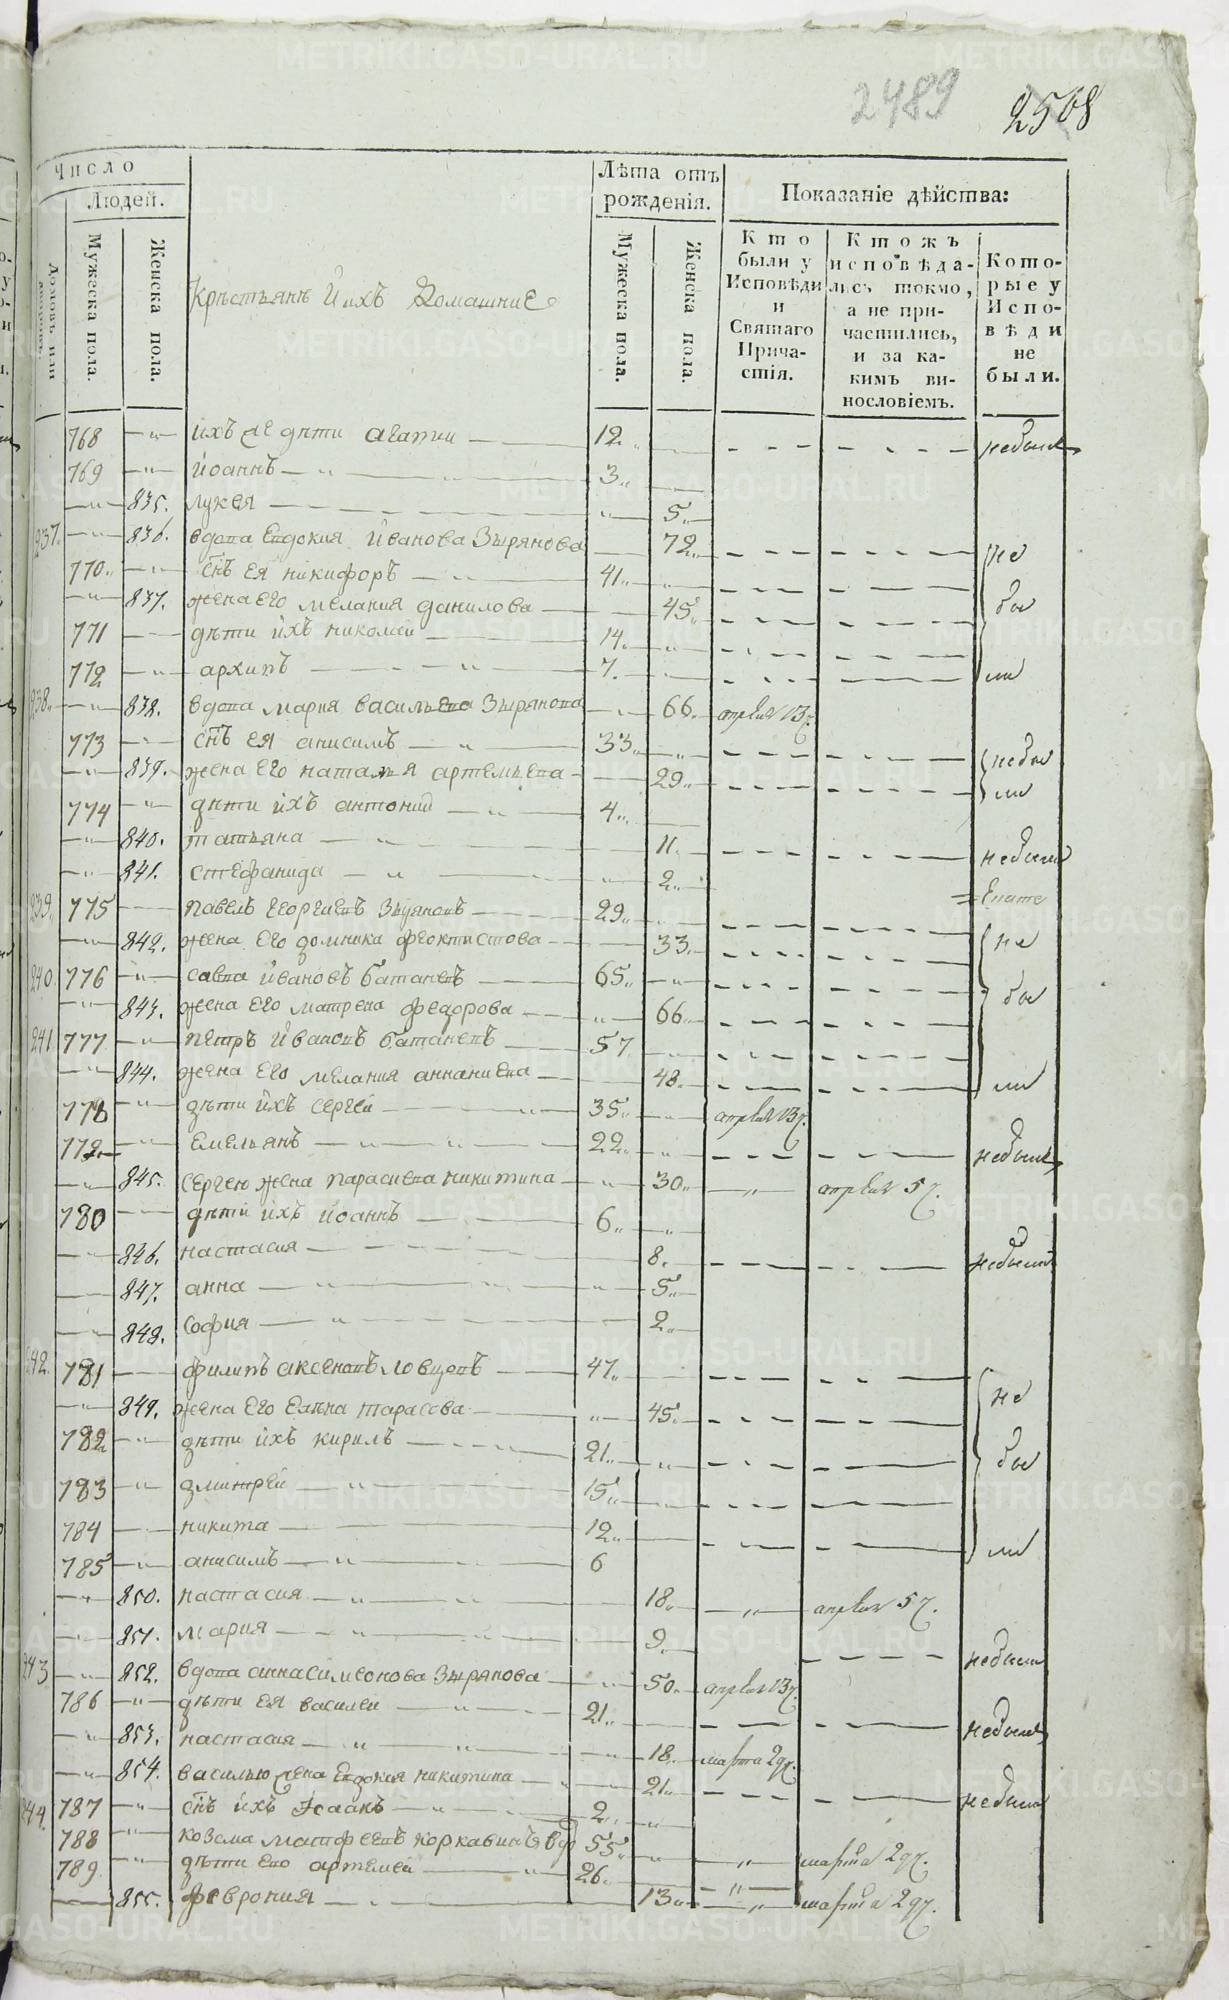 2489 2508
Число
Людей.
Лѣта отъ рожденія.
Показаніе дѣйства:
Мужеска пола.
Женска пола.
Крестьяне Й ихъ Домашние
Мужеска пола.
Женска пола.
Кто были у Исповѣди и Святаго Причастія.
Ктожъ исповѣдались токмо, а не причастились, и за какимъ винословіемъ.
Которые у Исповѣди не были.
768 ихъ же дѣти агапии 12 небыли
769 Йоаннъ 3
835. лукея 5
237. 836. вдова Евдокия Иванова Зырянова 72 не
770 сн҃ъ ея никифоръ 41
837. жена Его мелания данилова 45 бы
771 дѣти ихъ николай 14
772 архипъ 7 ли
238. 838. вдова мария васильева Зырянова 66 апреля 13
773 сн҃ъ ея анисимъ 33 небы
839. жена Его наталья артемьева 29 ли
774 дѣти ихъ антоний 4
840. татьяна 11 небыли
841. стефанида 2
239. 775 павелъ георгиевъ Зыряновъ 29
842. жена Его домника феоктистова 33 не
240. 776 савва Ивановъ батаневъ 65
843. жена его матрена федорова 66 бы
241. 777 петръ Ивановъ батаневъ 57
844. жена его мелания аннаниева 48 ли
778 дѣти ихъ сергей 35 апреля 13
779 Емельянъ 22 небыли
845. сергею жена парасковия никитина 30 апреля 5
780 дѣти ихъ Йоаннъ 6
846. настасия 8 небыли
847. анна 5
848. софия 2
242. 781 филипъ аксеновъ ловцовъ 47 не
849. жена Его Елена тарасова 45
782 дѣти ихъ кирилъ 21 бы
783 дмитрей 15
784 никита 12 ли
785 анисимъ 6
850. настасия 18 апреля 5
851. мария 9 небыли
243 852. вдова анна симеонова Зырянова 50 апреля 13
786 дѣти ея василей 21 небыли
853. настасия 18 марта 29
854. василью жена Евдокия никитина 21 небыли
787 сн҃ъ ихъ Исаакъ 2
244. 788 козма матфеевъ коркавинъ вд 55 марта 29
789 дѣти его артемей 26
855. феврония 13 марта 29
METRIKI.GASO-URAL.RU